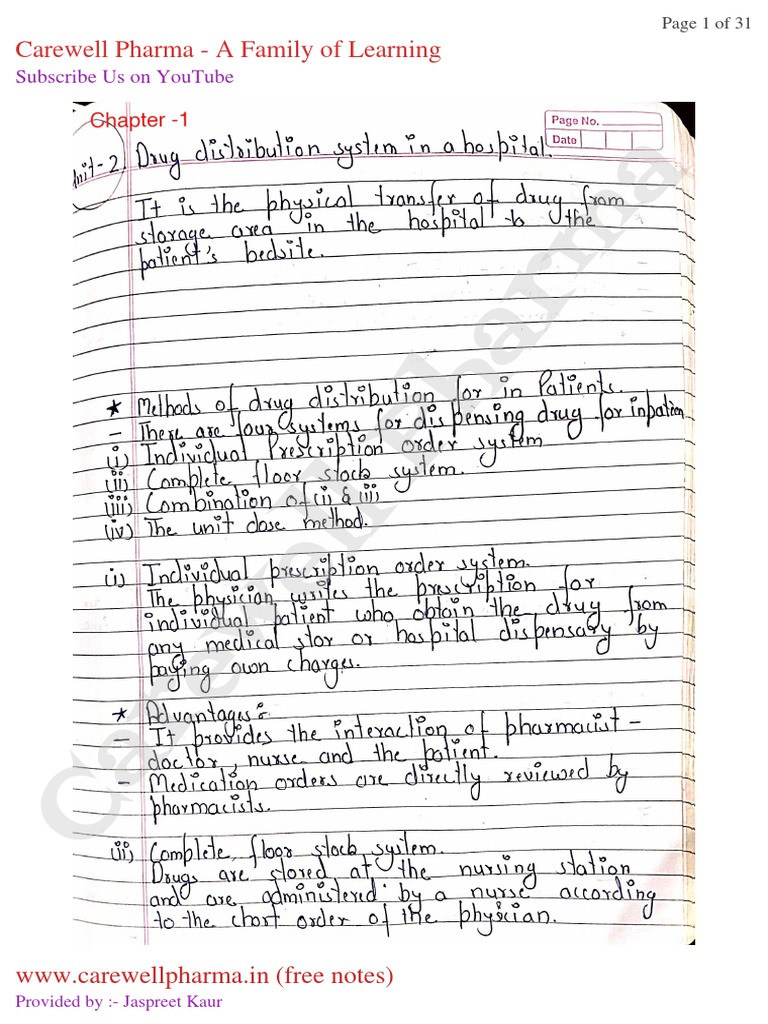 Page 1 of 31
Carewell Pharma - A Family of Learning
Subscribe Us on YouTube
Chapter -1
Page No.
Date
Unit-2. Drug distribution system in a hospital.
It is the physical transfer of drug from
storage area in the hospital to the
patient's bedsite.
* Methods of drug distribution for in Patients.
- There are four systems for dispensing drug for inpation
(i) Individual Prescription order system
(ii) Complete floor stock system.
(iii) Combination of (i) & (ii)
(iv) The unit dose method.
(i) Individual prescription order system.
The physician writes the prescription for
individual patient who obtain the drug from
any medical stor or hospital dispensary by
paying own charges.
* Advantages:
- It provides the interaction of pharmacist -
doctor, nurse and the patient.
- Medication orders are directly reviewed by
pharmacists.
(ii) Complete floor stock system.
Drugs are stored at the nursing station
and are administered by a nurse according
to the chort order of the physician.
Carewell Pharma
www.carewellpharma.in (free notes)
Provided by :- Jaspreet Kaur